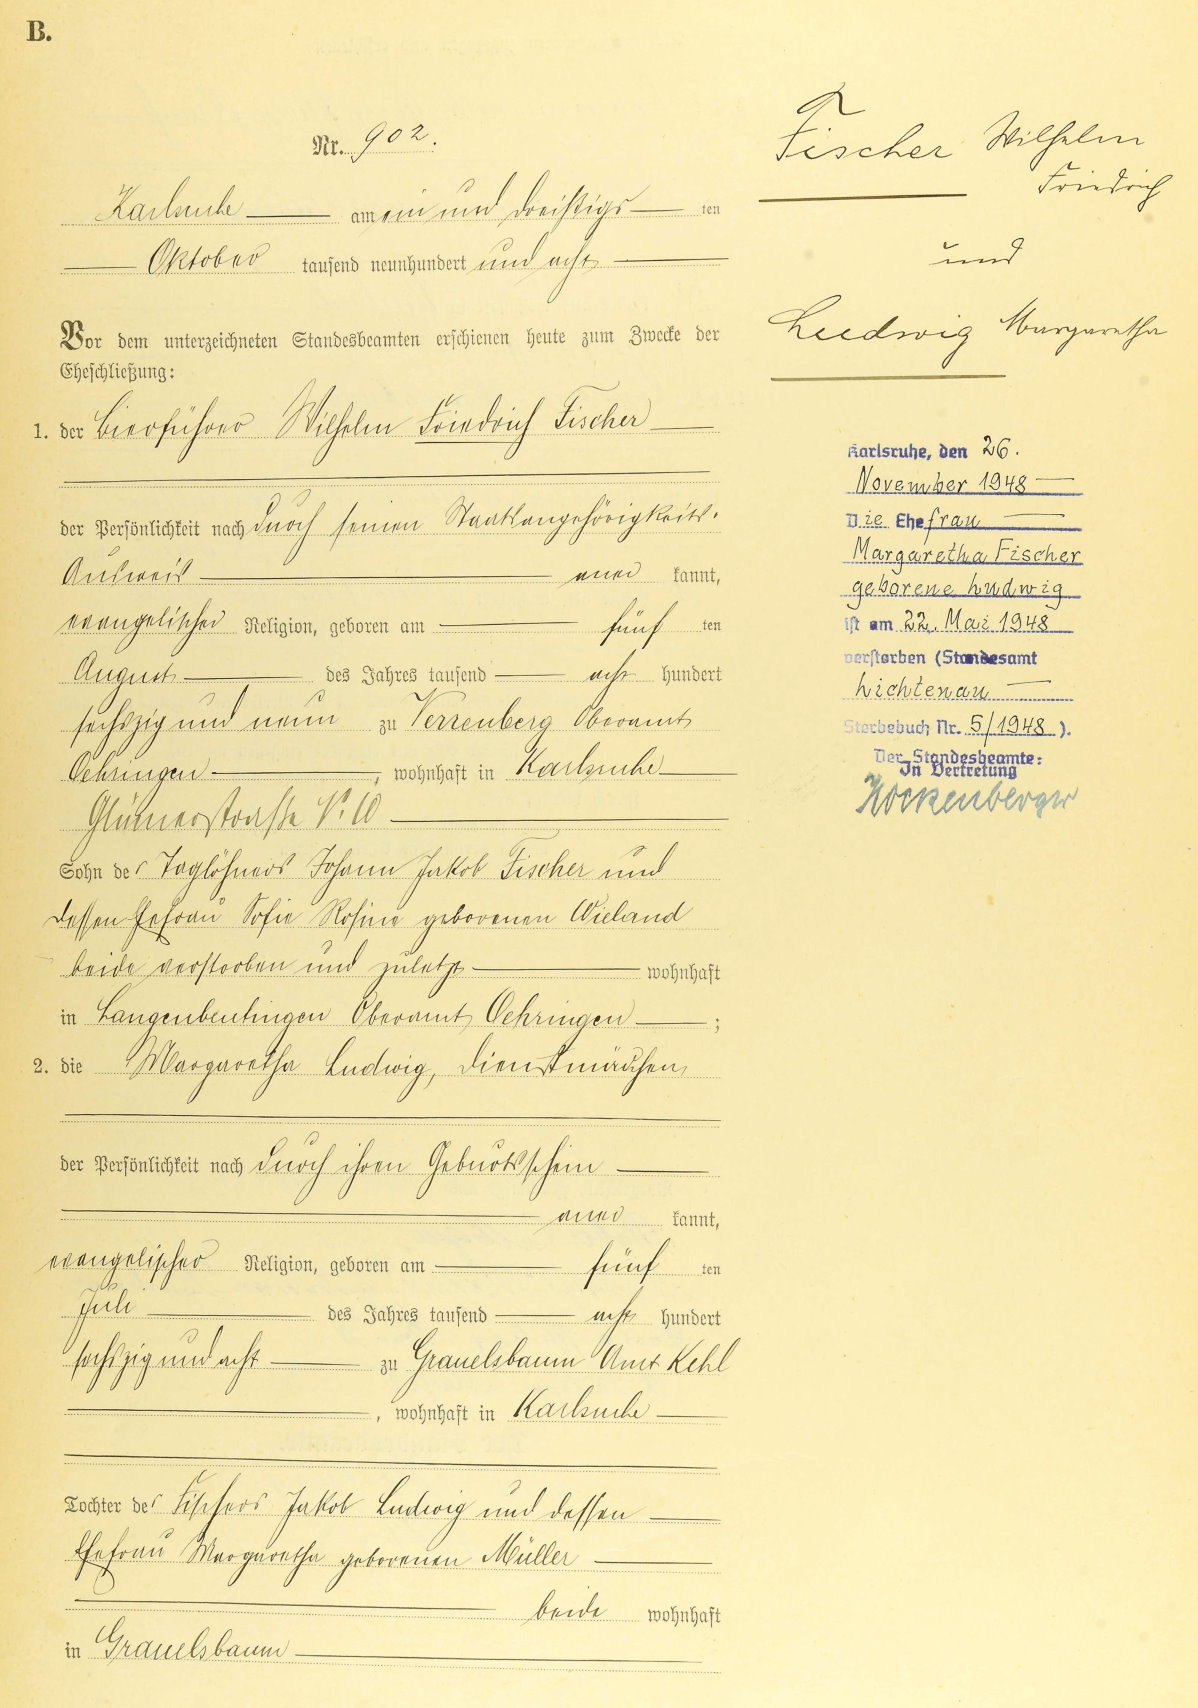 B.
Nr. 902.
Karlsruhe am ein und dreißigs ten
Oktober tausend neunhundert und acht
Vor dem unterzeichneten Standesbeamten erschienen heute zum Zwecke der
Eheschließung:
1. der Bierführer Wilhelm Friedrich Fischer
der Persönlichkeit nach durch seinen Staatsangehörigkeits-
Ausweis aner kannt,
evangelischer Religion, geboren am fünf ten
August des Jahres tausend acht hundert
sechszig und neun zu Verrenberg Oberamt
Oehringen, wohnhaft in Karlsruhe
Glümerstraße No. 10
Sohn des Taglöhners Johann Jakob Fischer und
dessen Ehefrau Sofie Rosine geborenen Wieland
beide verstorben und zuletzt wohnhaft
in Langenbeutingen Oberamt Oehringen;
2. die Margaretha Ludwig, Dienstmädchen
der Persönlichkeit nach durch ihren Geburtsschein
aner kannt,
evangelischer Religion, geboren am fünf ten
Juli des Jahres tausend acht hundert
sechszig und acht zu Grauelsbaum Amt Kehl
, wohnhaft in Karlsruhe
Tochter des Fischers Jakob Ludwig und dessen
Ehefrau Margaretha geborenen Müller
beide wohnhaft
in Grauelsbaum
Fischer Wilhelm
Friedrich
und
Ludwig Margaretha
Karlsruhe, den 26.
November 1948
Die Ehefrau
Margaretha Fischer
geborene Ludwig
ist am 22. Mai 1948
verstorben (Standesamt
Lichtenau
Sterbebuch Nr. 5/1948).
Der Standesbeamte:
In Vertretung